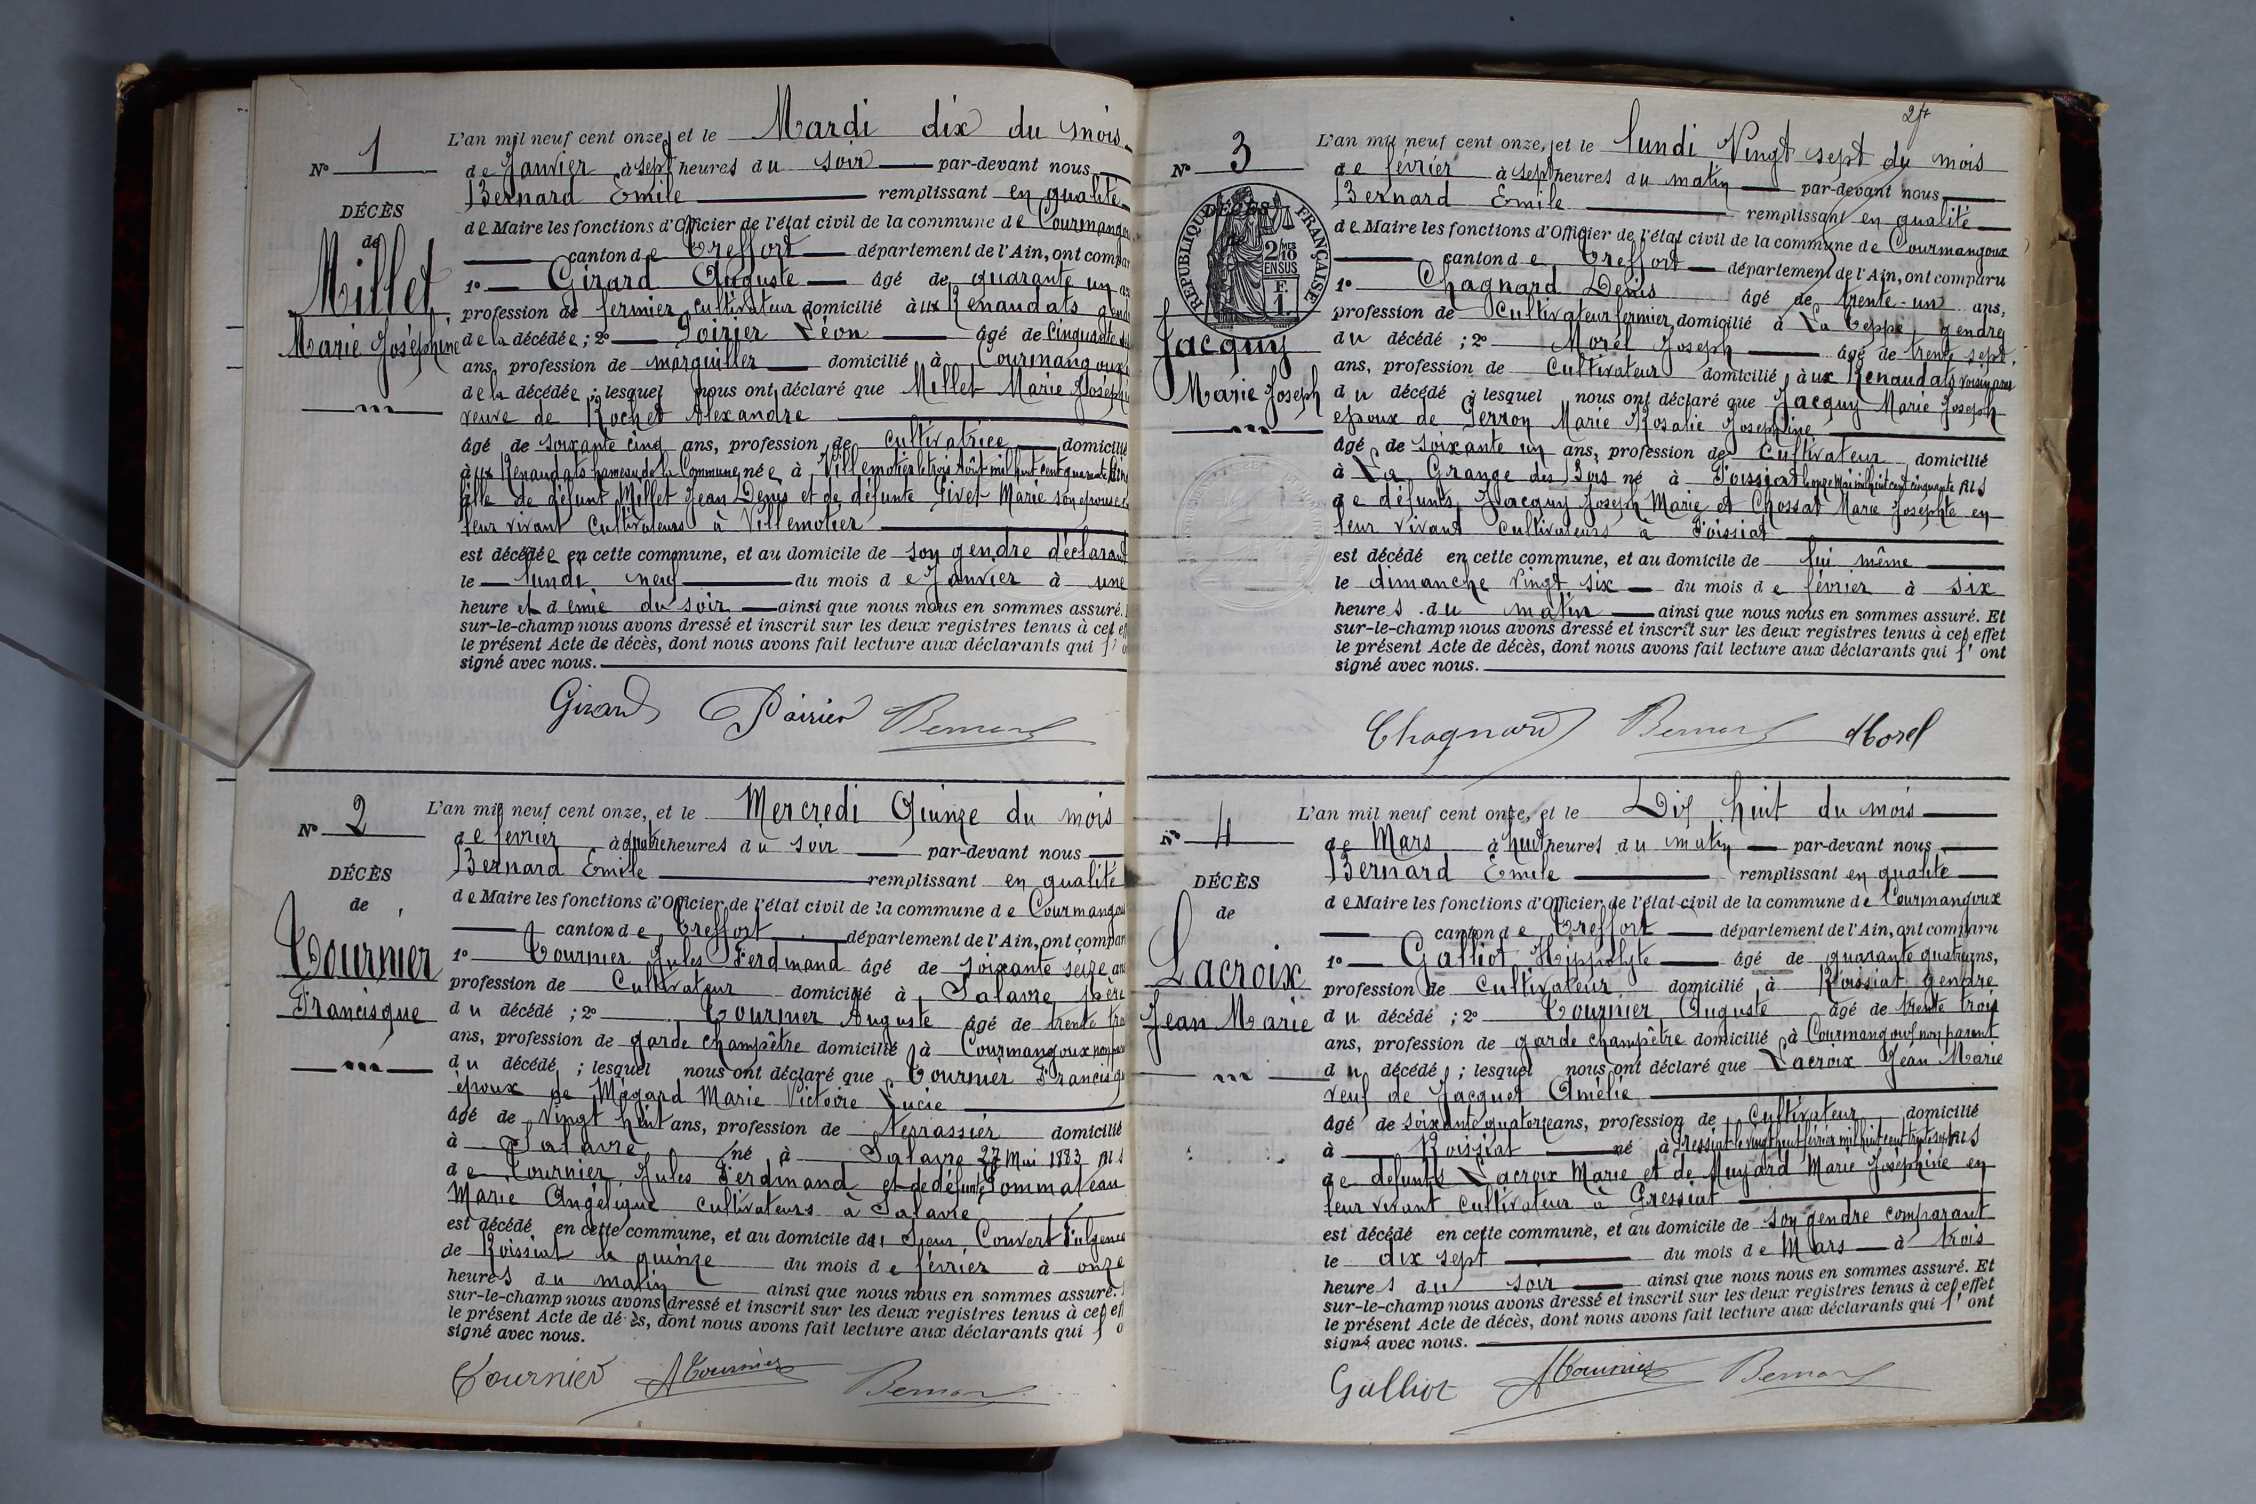 N° 1
DÉCÈS
de
Millet
Marie Joséphine
L'an mil neuf cent onze, et le Mardi dix du mois
de Janvier à sept heures du soir par-devant nous
Bernard Emile remplissant en qualité
de Maire les fonctions d'Officier de l'état civil de la commune de Courmangou
canton de Treffort département de l'Ain, ont compar
1° Girard Auguste âgé de quarante un
profession de fermier cultivateur domicilié aux Renaudats gendre
de la décédée ; 2° Poirier Léon âgé de cinquante
ans, profession de marguiller domicilié à Courmangoux
de la décédée ; lesquel nous ont déclaré que Millet Marie Joséphi
veuve de Rochet Alexandre
âgé de soixante cinq ans, profession de cultivatrice domicilié
aux Renaudats hameau de la Commune née à Villemotier le trois Août mil huit cent quarante
fille de défunt Millet Jean Denis et de défunte Pivet Marie son épouse
leur vivant cultivateurs à Villemotier
est décédée en cette commune, et au domicile de son gendre déclarant
le lundi neuf du mois de Janvier à une
heure et demie du soir ainsi que nous nous en sommes assuré.
sur-le-champ nous avons dressé et inscrit sur les deux registres tenus à cet ef
le présent Acte de décès, dont nous avons fait lecture aux déclarants qui l'o
signé avec nous.
Girard Poirier Bernard
N° 2
DÉCÈS
de
Tournier
Francisque
L'an mil neuf cent onze, et le Mercredi Quinze du mois
de février à quatre heures du soir par-devant nous
Bernard Emile remplissant en qualité
de Maire les fonctions d'Officier de l'état civil de la commune de Courmangou
canton de Treffort département de l'Ain, ont compar
1° Tournier Jules Ferdinand âgé de soixante seize ans
profession de Cultivateur domicilié à Salavre père
du décédé ; 2° Tournier Auguste âgé de trente tro
ans, profession de garde champêtre domicilié à Courmangoux non
du décédé ; lesquel nous ont déclaré que Tournier Francisq
époux de Mégard Marie Victoire Lucie
âgé de vingt huit ans, profession de terrassier domicilié
à Salavre né à Salavre 27 Mai 1883 fils
de Tournier Jules Ferdinand et de défunte Pommateau
Marie Angélique cultivateurs à Salavre
est décédé en cette commune, et au domicile du Sieur Convert Fulgence
de Roissiat le quinze du mois de février à onze
heures du matin ainsi que nous nous en sommes assuré.
sur-le-champ nous avons dressé et inscrit sur les deux registres tenus à cet eff
le présent Acte de décès, dont nous avons fait lecture aux déclarants qui l'o
signé avec nous.
Tournier ATournier Bernard
27
N° 3
RÉPUBLIQUE FRANÇAISE
2/10 EN SUS
F. 1.
DÉCÈS
Jacquy
Marie Joseph
L'an mil neuf cent onze, et le lundi Vingt sept du mois
de février à sept heures du matin par-devant nous
Bernard Emile remplissant en qualité
de Maire les fonctions d'Officier de l'état civil de la commune de Courmangoux
canton de Treffort département de l'Ain, ont comparu
1° Chagnard Denis âgé de trente-un ans,
profession de Cultivateur fermier domicilié à La Teppe, gendre
du décédé ; 2° Morel Joseph âgé de trente sept
ans, profession de Cultivateur domicilié aux Renaudats voisin
du décédé ; lesquel nous ont déclaré que Jacquy Marie Joseph
époux de Perron Marie Rosalie Joséphine
âgé de soixante un ans, profession de Cultivateur domicilié
à La Grange des Bois né à Poissiat le onze Mai mil huit cent cinquante fils
de défunts Jacquy Joseph Marie et Chossat Marie Josephte en
leur vivant cultivateurs à Poissiat
est décédé en cette commune, et au domicile de lui même
le dimanche vingt six du mois de février à six
heures du matin ainsi que nous nous en sommes assuré. Et
sur-le-champ nous avons dressé et inscrit sur les deux registres tenus à cet effet
le présent Acte de décès, dont nous avons fait lecture aux déclarants qui l'ont
signé avec nous.
Chagnard Bernard Morel
N° 4
DÉCÈS
de
Lacroix
Jean Marie
L'an mil neuf cent onze, et le Dix huit du mois
de Mars à huit heures du matin par-devant nous
Bernard Emile remplissant en qualité
de Maire les fonctions d'Officier de l'état civil de la commune de Courmangoux
canton de Treffort département de l'Ain, ont comparu
1° Galliot Hippolyte âgé de quarante quatre ans,
profession de Cultivateur domicilié à Roissiat gendre
du décédé ; 2° Tournier Auguste âgé de trente trois
ans, profession de garde champêtre domicilié à Courmangoux non parent
du décédé ; lesquel nous ont déclaré que Lacroix Jean Marie
veuf de Jacquet Amélie
âgé de soixante quatorze ans, profession de Cultivateur domicilié
à Roissiat né à Pressiat le vingt huit février mil huit cent trente sept fils
de défunts Lacroix Marie et de Muyard Marie Joséphine en
leur vivant cultivateur à Pressiat
est décédé en cette commune, et au domicile de son gendre comparant
le dix sept du mois de Mars à trois
heures du soir ainsi que nous nous en sommes assuré. Et
sur-le-champ nous avons dressé et inscrit sur les deux registres tenus à cet effet
le présent Acte de décès, dont nous avons fait lecture aux déclarants qui l'ont
signé avec nous.
Galliot ATournier Bernard